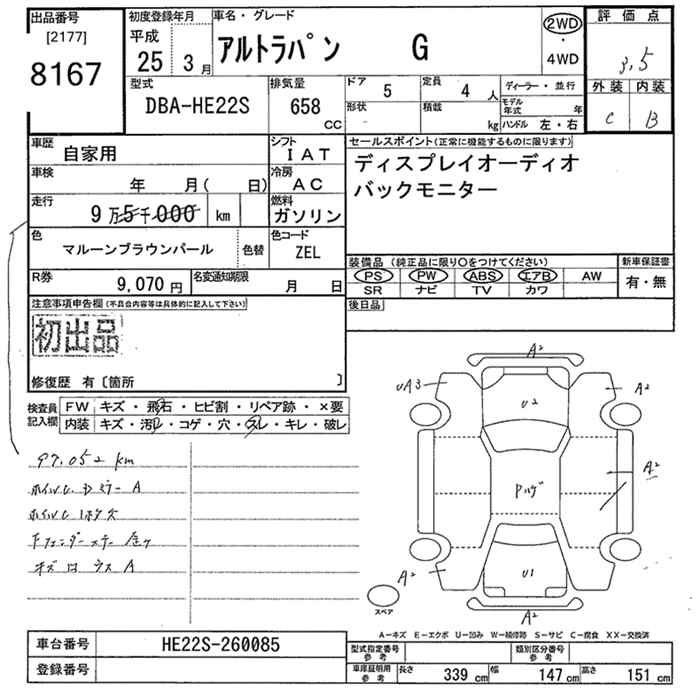 出品番号
[2177]
8167
初度登録年月
平成
25 3月
車名・グレード
アルトラパン G
2WD
・
4WD
評価点
3.5
外装 内装
C B
型式
DBA-HE22S
排気量
658
CC
ドア
5
定員
4 人
形状
積載
kg
ディーラー・並行
モデル年式 年
ハンドル 左・右
車歴
自家用
シフト
IAT
車検
年 月( 日)
冷房
AC
走行
9万5千000 km
燃料
ガソリン
色
マルーンブラウンパール
色替
色コード
ZEL
R券
9,070円
名変通知期限
月 日
セールスポイント(正常に機能するものに限ります)
ディスプレイオーディオ
バックモニター
装備品(純正品に限り○をつけてください)
PS PW ABS エアB AW
SR ナビ TV カワ
新車保証書
有・無
後日品
注意事項申告欄(不具合内容等は具体的に記入して下さい)
初出品
修復歴 有〔箇所 〕
検査員
記入欄
FW キズ・飛石・ヒビ割・リペア跡・×要
内装 キズ・汚レ・コゲ・穴・スレ・キレ・破レ
97,052 km
A²
UA3
A²
U2
Pハゲ
A²
U1
A²
A²
A²
スペア
A-キズ E-エクボ U-凹み W-補修跡 S-サビ C-腐食 XX-交換済
車台番号
HE22S-260085
登録番号
型式指定番号
参考
類別区分番号
参考
車庫証明用
参考
長さ 339 cm
幅 147 cm
高さ 151 cm